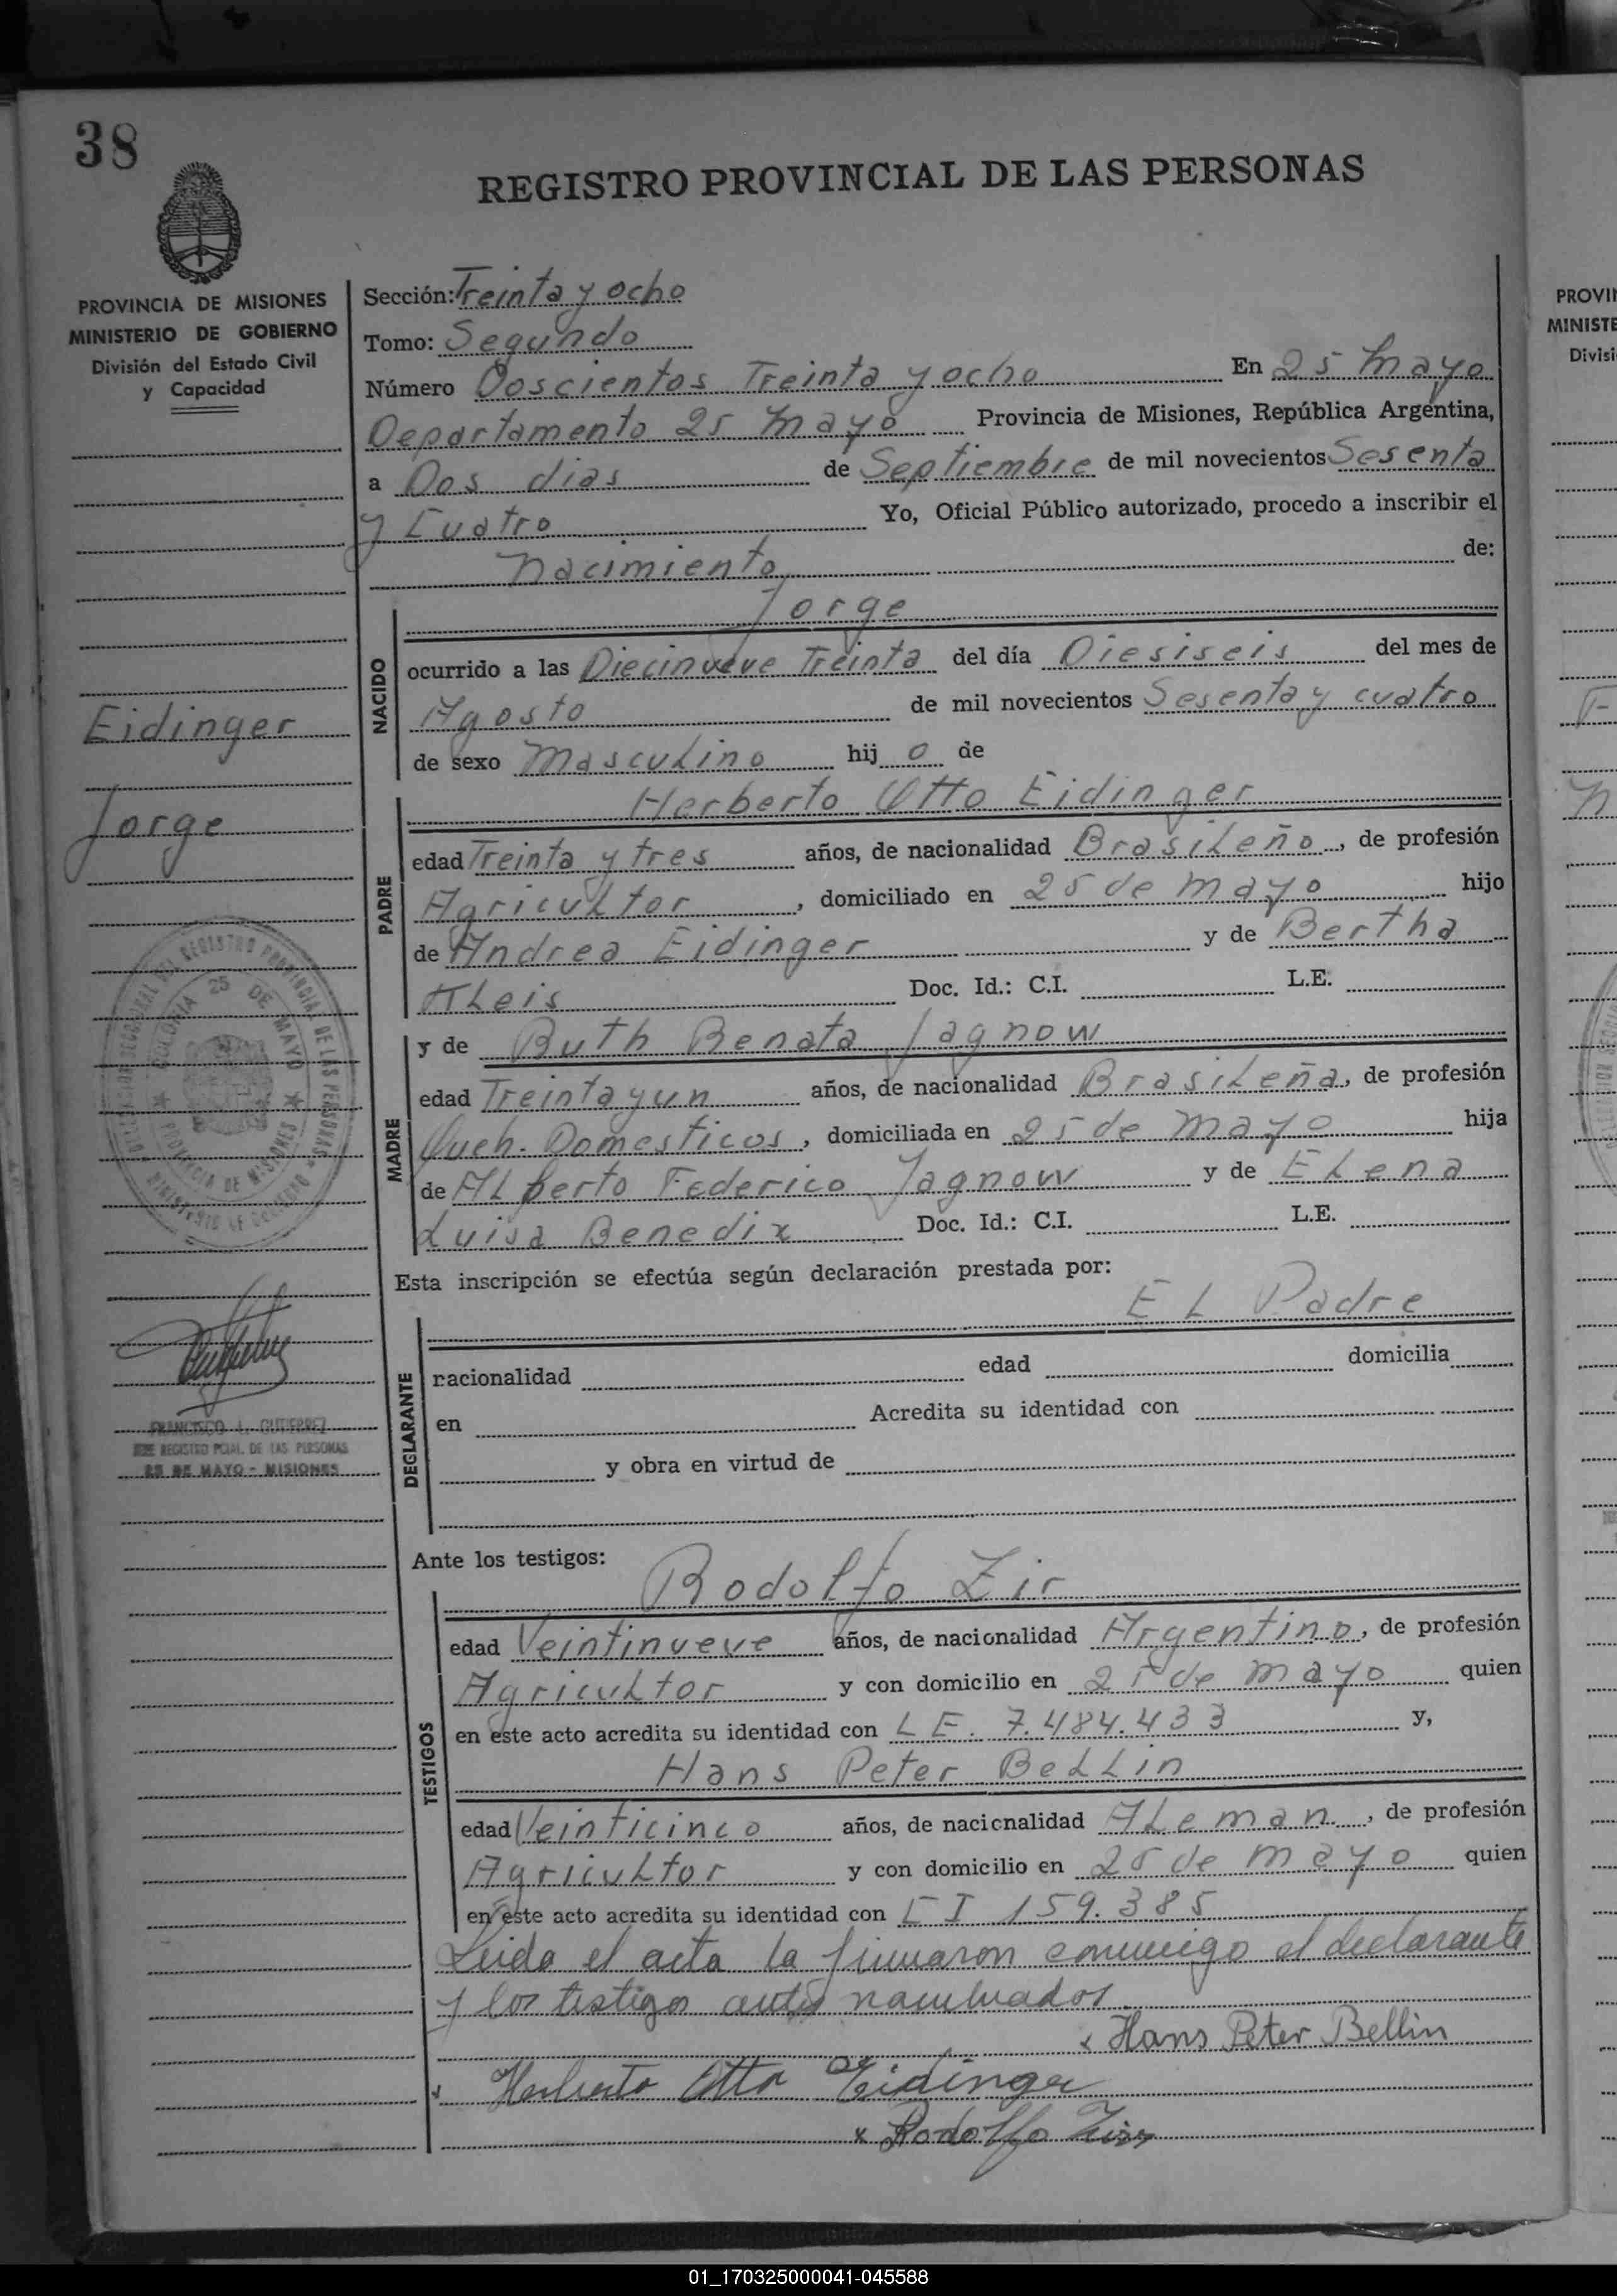 38
REGISTRO PROVINCIAL DE LAS PERSONAS
PROVINCIA DE MISIONES
MINISTERIO DE GOBIERNO
División del Estado Civil
y Capacidad
Sección: Treinta y ocho
Tomo: Segundo
Número Doscientos Treinta y ocho En 25 Mayo
Departamento 25 Mayo Provincia de Misiones, República Argentina,
a Dos dias de Septiembre de mil novecientos Sesenta
y Cuatro Yo, Oficial Público autorizado, procedo a inscribir el
nacimiento de:
Eidinger
Jorge
NACIDO
Jorge
ocurrido a las Diecinueve Treinta del día Diesiseis del mes de
Agosto de mil novecientos Sesenta y cuatro
de sexo Masculino hij o de
PADRE
Herberto Otto Eidinger
edad Treinta y tres años, de nacionalidad Brasileño, de profesión
Agricultor, domiciliado en 25 de Mayo hijo
de Andrea Eidinger y de Bertha
Kleis Doc. Id.: C.I. L.E.
MADRE
y de Ruth Renata Jagnow
edad Treinta y un años, de nacionalidad Brasileña, de profesión
Queh. Domesticos, domiciliada en 25 de Mayo hija
de Alberto Federico Jagnow y de Elena
Luisa Benedix Doc. Id.: C.I. L.E.
DELEGACION SECCIONAL DEL REGISTRO PROVINCIAL DE LAS PERSONAS
COLONIA 25 DE MAYO
PROVINCIA DE MISIONES
MINISTERIO DE GOBIERNO
Esta inscripción se efectúa según declaración prestada por:
El Padre
DECLARANTE
nacionalidad edad domicilia
en Acredita su identidad con
y obra en virtud de
FRANCISCO L. GUTIERREZ
JEFE REGISTRO PCIAL. DE LAS PERSONAS
25 DE MAYO - MISIONES
Ante los testigos:
TESTIGOS
Rodolfo Zir
edad Veintinueve años, de nacionalidad Argentino, de profesión
Agricultor y con domicilio en 25 de Mayo quien
en este acto acredita su identidad con LE. 7.484.433 y,
Hans Peter Bellin
edad Veinticinco años, de nacionalidad Aleman, de profesión
Agricultor y con domicilio en 25 de Mayo quien
en este acto acredita su identidad con CI 159.385
Leida el acta la firmaron conmigo el declarante
y los testigos antes nombrados
x Hans Peter Bellin
x Herberto Otto Eidinger
x Rodolfo Zir
PROVIN
MINISTE
Divisi
01_170325000041-045588